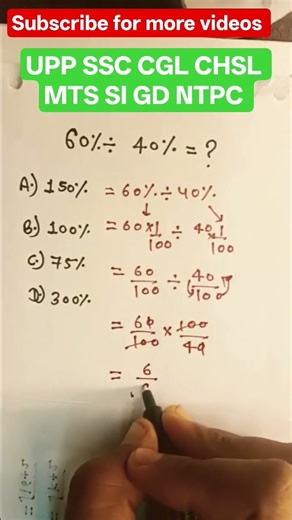 Subscribe for more videos
UPP SSC CGL CHSL
MTS SI GD NTPC
60% ÷ 40% = ?
A.) 150%
= 60% ÷ 40%
B.) 100%
= 60 × 1/100 ÷ 40 × 1/100
C.) 75%
= 60/100 ÷ 40/100
D.) 300%
= 60/100 × 100/40
= 6/